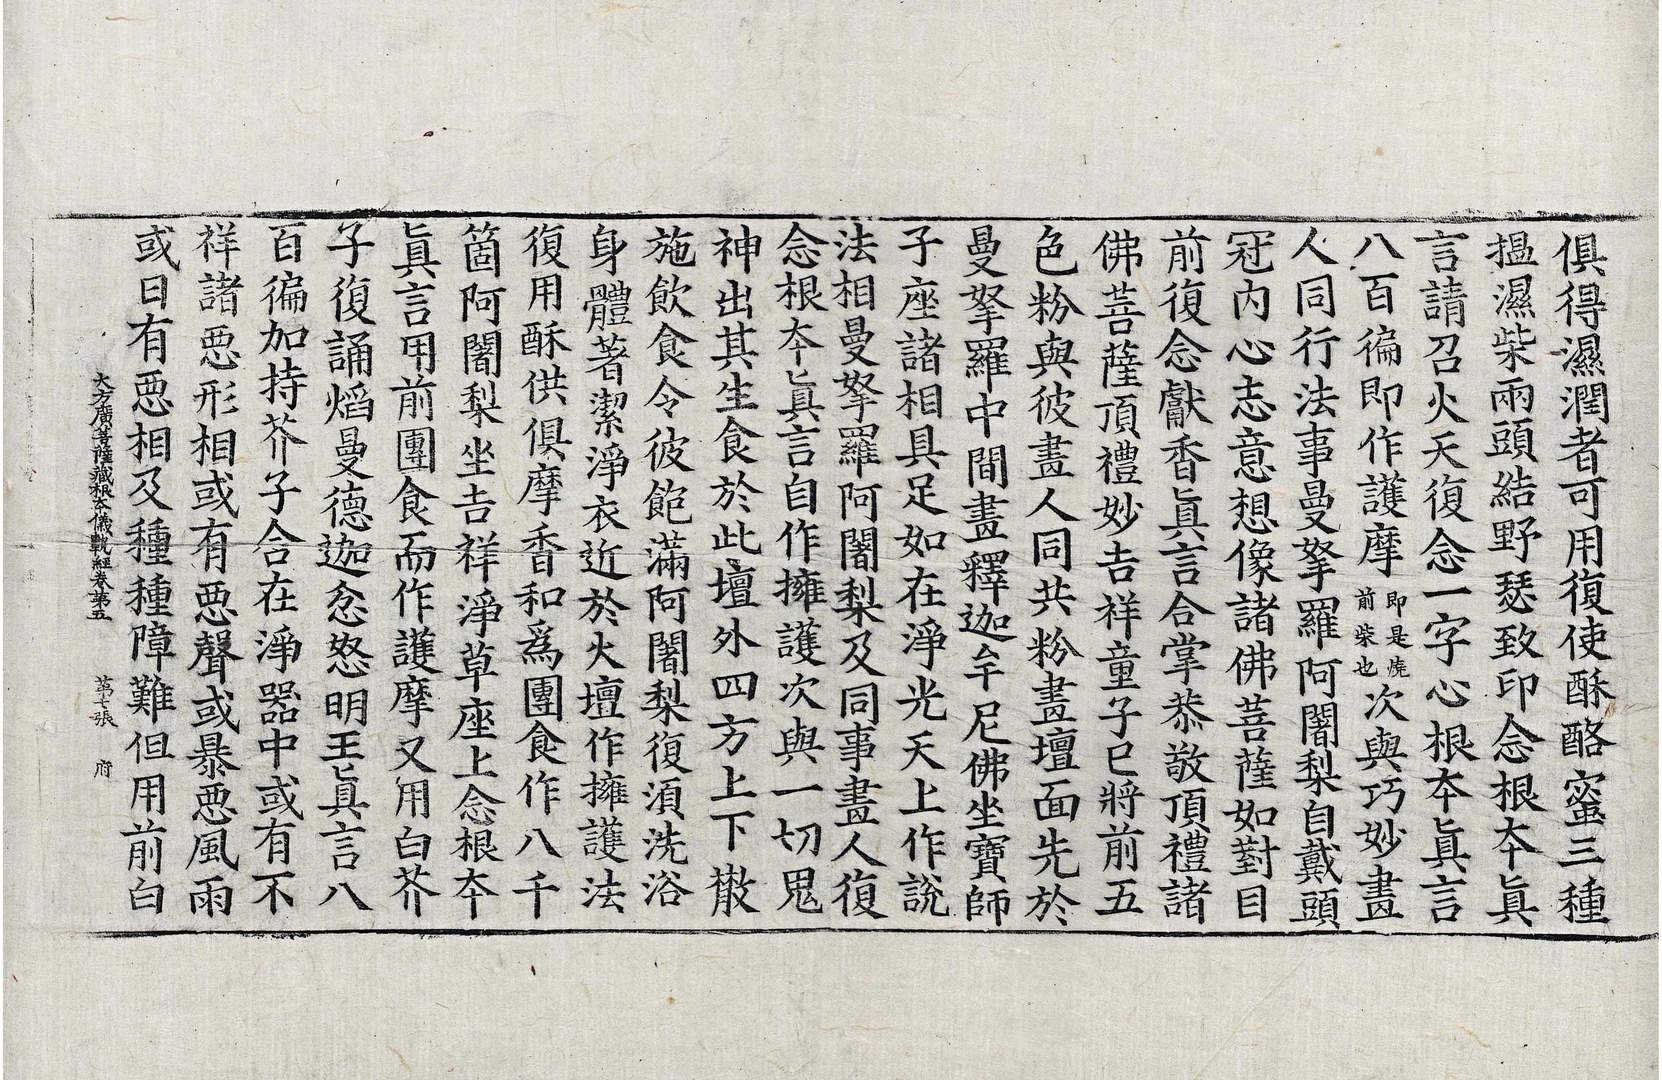 俱得濕潤者可用復使酥酪蜜三種
揾濕柴兩頭結野瑟致印念根夲眞
言請召火天復念一字心根夲眞言
八百徧即作護摩即是燒前柴也次與巧妙畫
人同行法事曼拏羅阿闍梨自戴頭
冠内心志意想像諸佛菩薩如對目
前復念獻香眞言合掌恭敬頂禮諸
佛菩薩頂禮妙吉祥童子已將前五
色粉與彼畫人同共粉畫壇面先於
曼拏羅中間畫釋迦牟尼佛坐寶師
子座諸相具足如在淨光天上作說
法相曼拏羅阿闍梨及同事畫人復
念根夲眞言自作擁護次與一切鬼
神出其生食於此壇外四方上下散
施飲食令彼飽滿阿闍梨復湏洗浴
身體著潔淨衣近於火壇作擁護法
復用酥供俱摩香和爲團食作八千
箇阿闍梨坐吉祥淨草座上念根夲
眞言用前團食而作護摩又用白芥
子復誦焰曼德迦忿怒明王眞言八
百徧加持芥子合在淨器中或有不
祥諸惡形相或有惡聲或暴惡風雨
或日有惡相及種種障難但用前白
大方廣菩薩藏根夲儀軌經卷第五　第七張　府